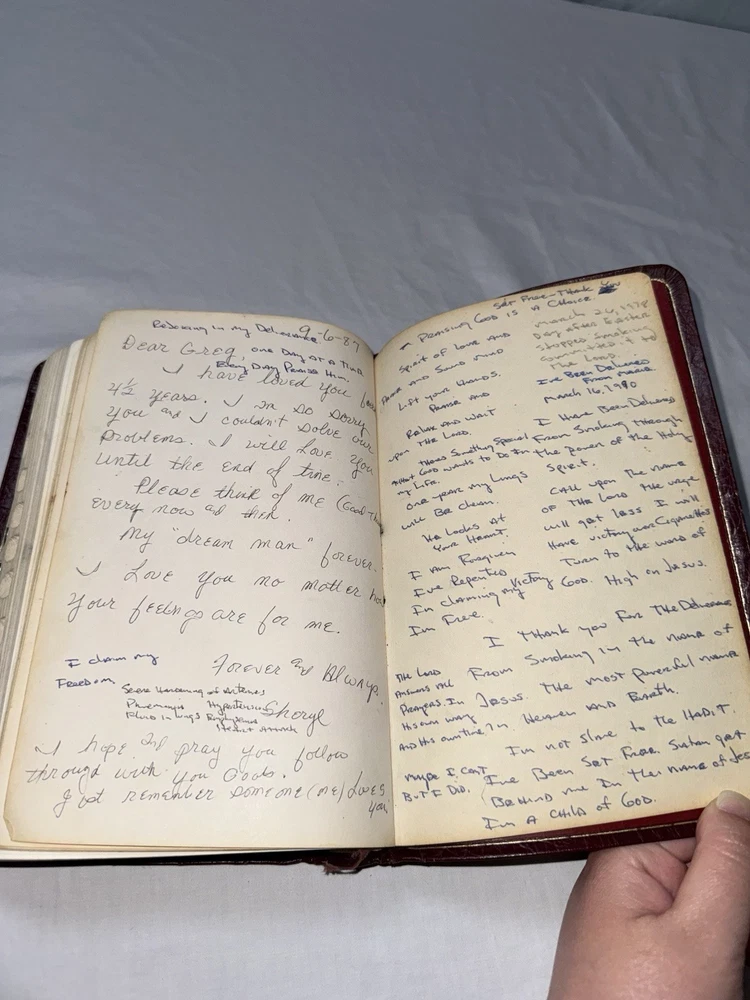 Rejoicing in my Deliverance 9-6-87
Dear Greg, one Day at a time
Every Day Praise Him.
I have loved you for
4½ years. I am so sorry
you and I couldn't solve our
problems. I will love you
until the end of time.
Please think of me (Good
every now and then.
My "dream man" forever.
I Love you no matter
your feelings are for me.
I claim my
Freedom
Forever and Always,
Severe Hardening of Arteries
Pneumonia Hypertension
Fluid in lungs Emphysema
Heart Attack
Sheryl
I hope and pray you follow
through with you Goals.
Just remember someone (me) Loves
you
Set Free - Thank You
Praising God is A Choice.
Spirit of Love And
Power And Sound Mind
Lift your Hands.
Praise And
Relax And Wait
upon The Lord.
theres Something Special
that God wants to Do in
my Life.
one year my lungs
will Be clean.
He Looks At
Your Heart.
I Am Forgiven
I've Repented
I'm claiming my Victory
I'm Free.
March 26, 1978
Day after Easter
stopped smoking
committed it to
the Lord.
I've Been Delivered
From
March 16, 1980
I Have Been Delivered
From Smoking through
the power of the Holy
Spirit.
Call upon The name
of The Lord The urge
will get less I will
Have victory over Cigarettes
Turn to the word of
God. High on Jesus.
I Thank you For The Deliverance
From Smoking in the name of
Jesus. The most powerful name
in Heaven And Earth.
The Lord
Answers All
Prayers. In
His own way
And His own time
I'm not slave to the Habit.
I've Been Set Free. Satan get
Behind me In the name of Jesus
I'm A child of God.
Maybe I Cant
But I Did.